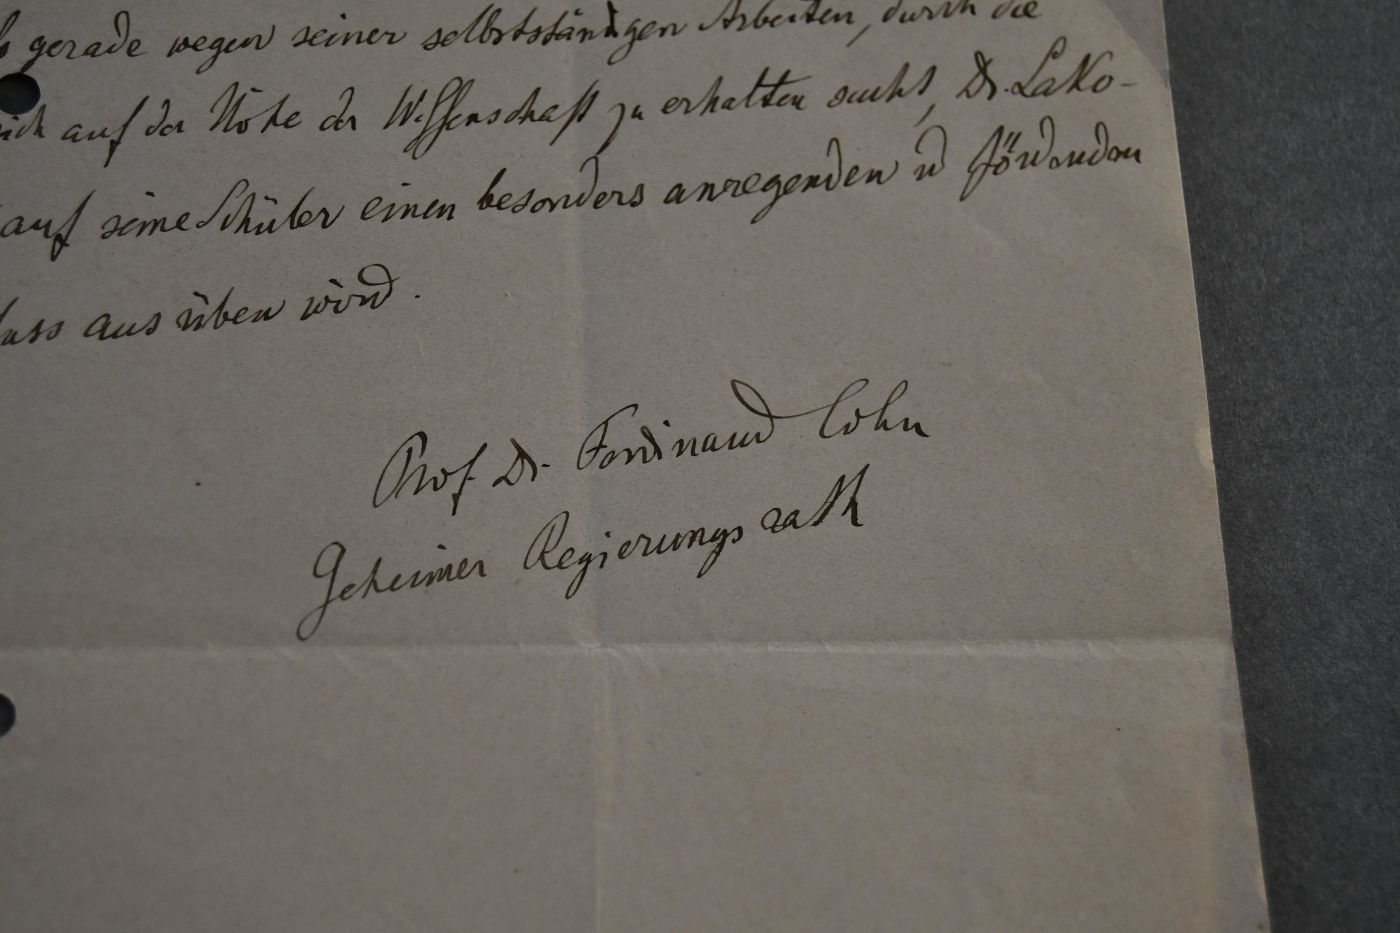 gerade wegen seiner selbstständigen Arbeiten, durch die
sich auf der Höhe der Wissenschaft zu erhalten sucht, Dr. Lako-
auf seine Schüler einen besonders anregenden u fördernden
luss aus üben wird.
Prof. Dr. Ferdinand Cohn
Geheimer Regierungsrath